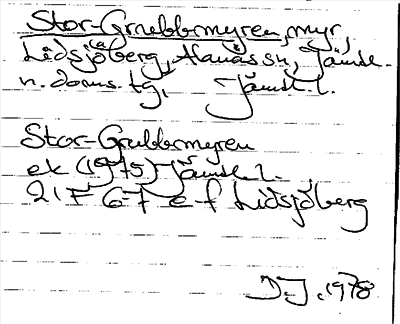 Stor-Grubbmyren, myr,
Lidsjöberg, Alanäs sn, Jämtl.
n. doms. tg, Jämtl. l.
Stor-Grubbmyren
ek (1975) Jämtl. l.
21 F 67 e-f Lidsjöberg
D.J. 1978